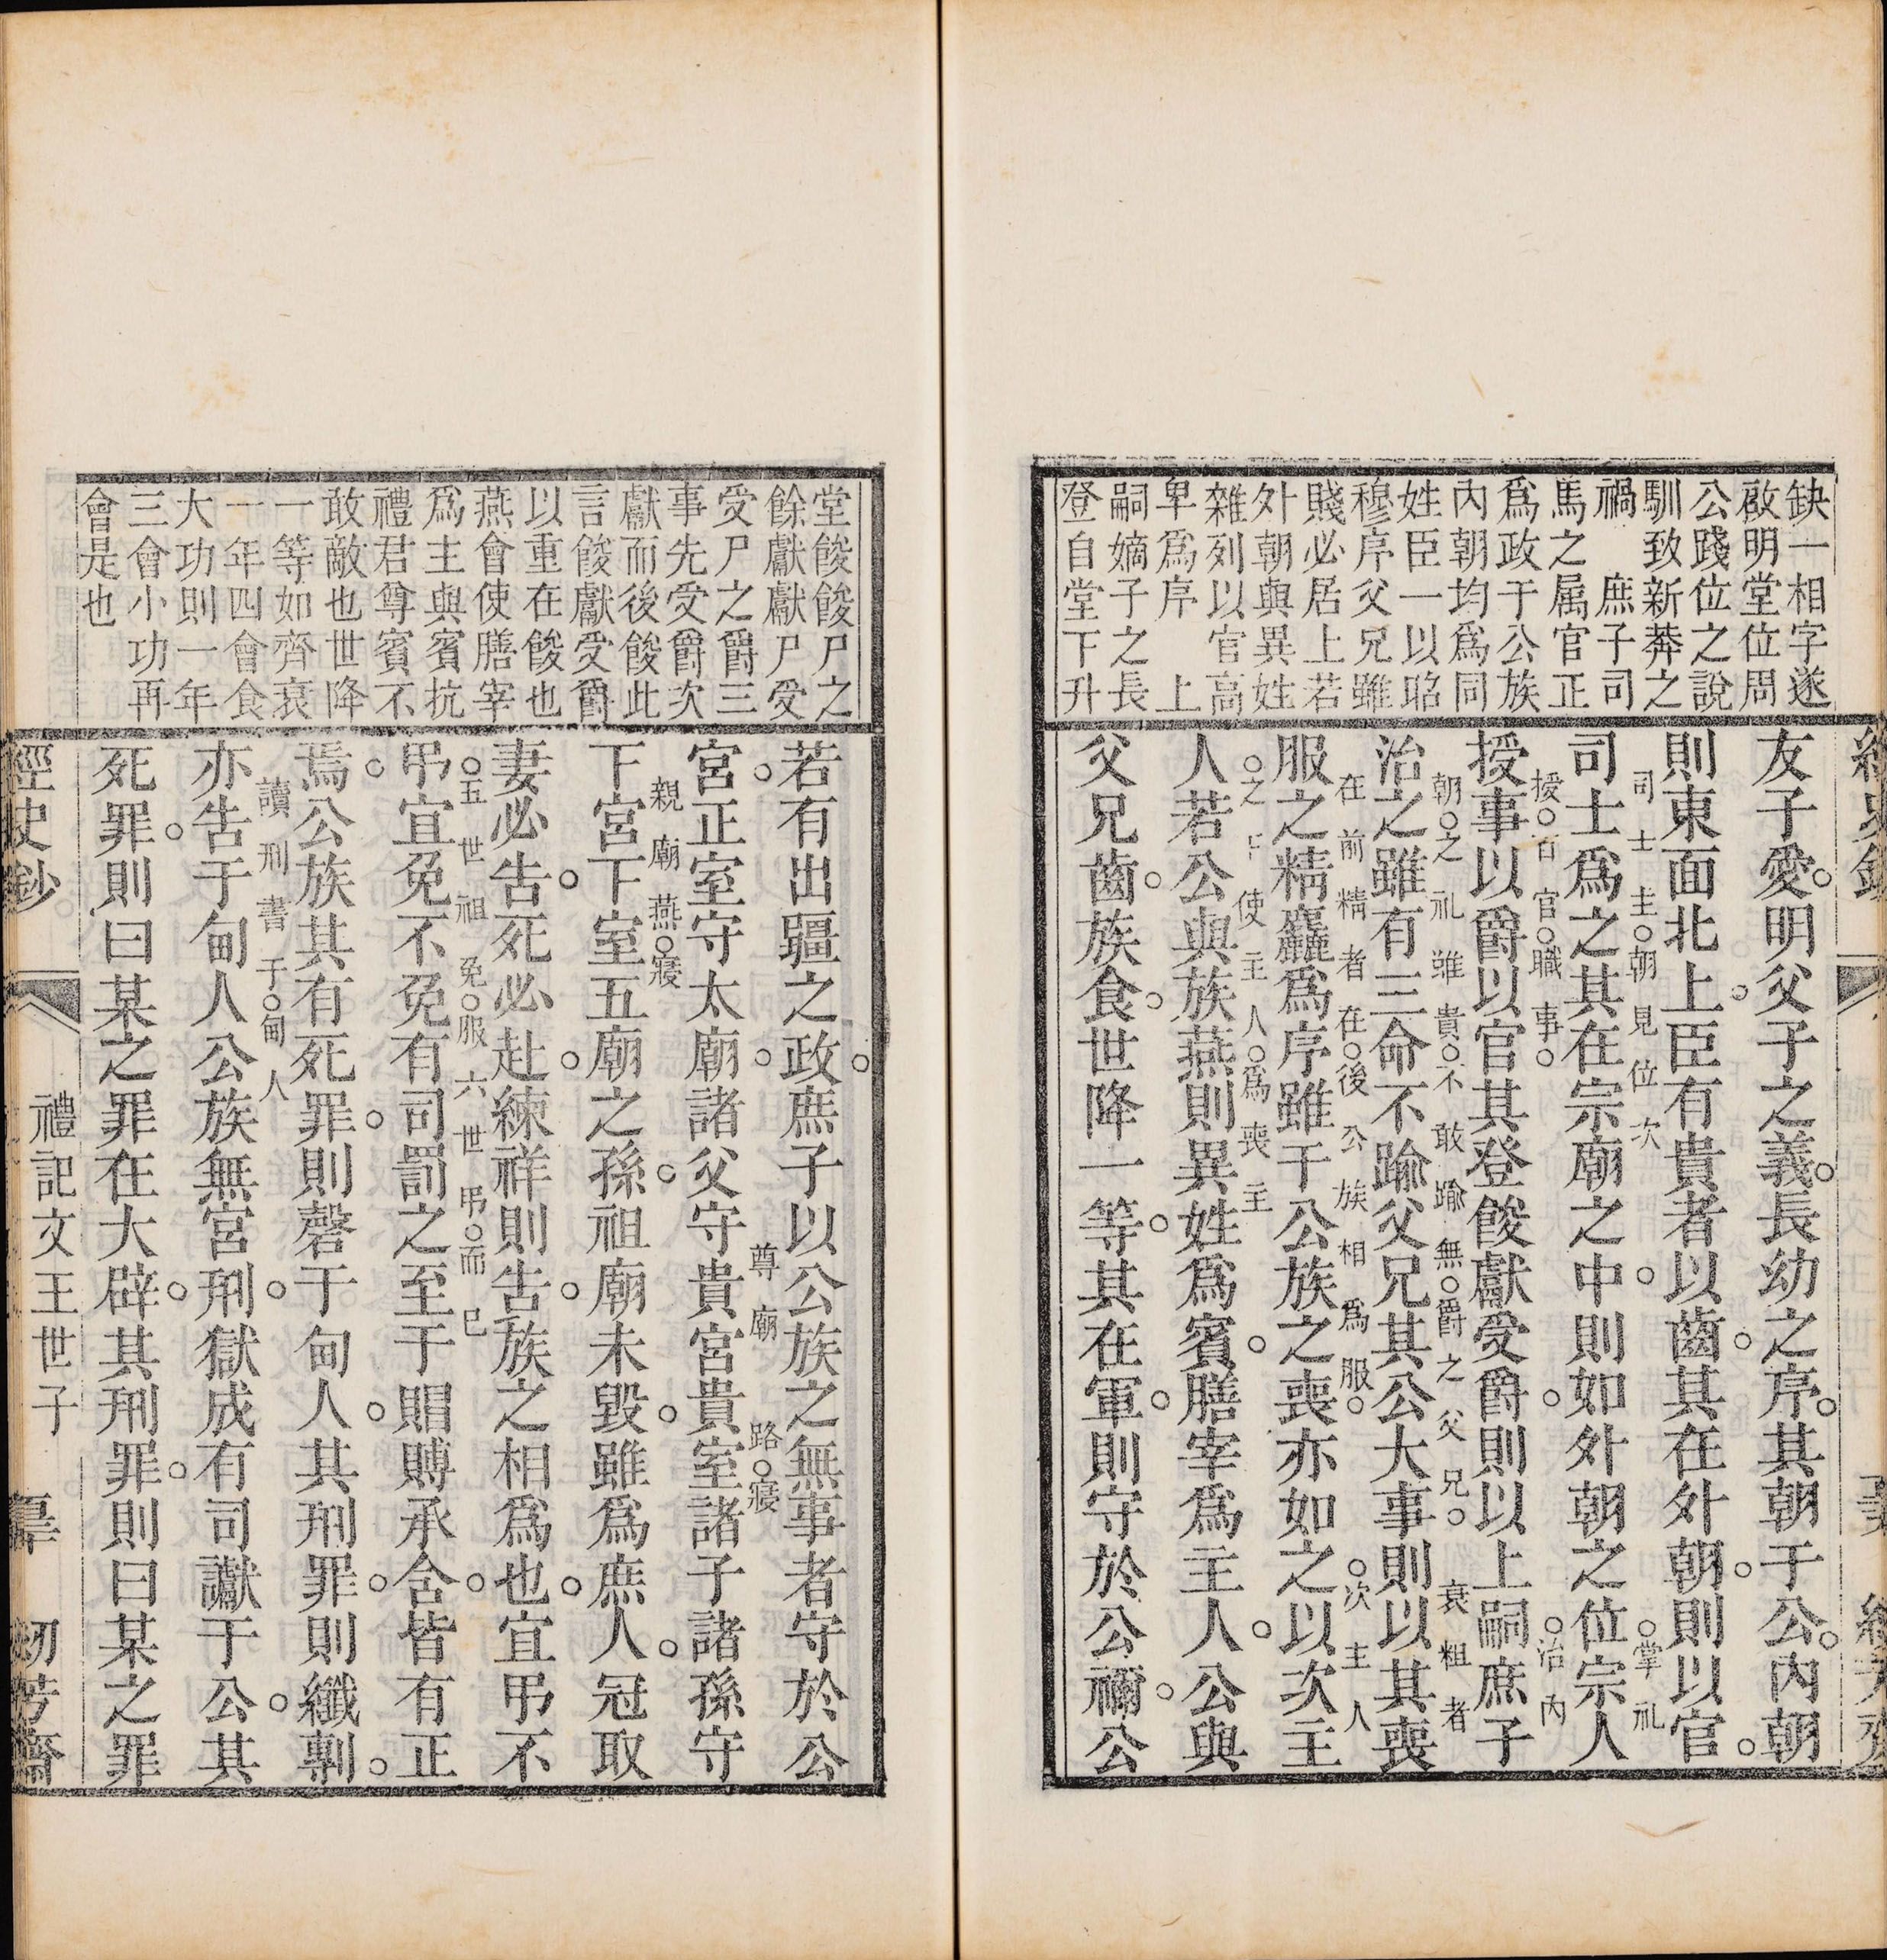 缺一相字遂
啟明堂位周
公踐位之說
馴致新莽之
禍　庶子司
馬之属官正
爲政于公族
內朝均爲同
姓臣一以昭
穆序父兄雖
賤必居上若
外朝與異姓
雜列以官高
卑爲序　上
嗣嫡子之長
登自堂下升
友子愛。明父子之義。長幼之序。其朝于公。內朝
則東面北上。臣有貴者以齒。其在外朝。則以官。
司士主。朝見位次
。掌礼
司士爲之其在宗廟之中。則如外朝之位宗人
授。百官。職事。
。治內
授事以爵以官其登餕獻受爵。則以上嗣庶子
朝。之礼雖貴。不敢踰無。爵之父兄。
衰粗者
治之雖有三命不踰父兄其公大事則以其喪
在前精者在。後公族相爲服。
。次主人
服之精麤爲序雖于公族之喪亦如之以次主
。之下使主人。爲喪主
人若公與族燕則異姓爲賓。膳宰爲主人。公與
父兄齒。族食。世降一等。其在軍。則守於公禰。公
堂餕餕尸之
餘獻獻尸受
受尸之爵三
事先受爵次
獻而後餕此
言餕獻受爵
以重在餕也
燕會使膳宰
爲主與賓抗
禮君尊賓不
敢敵也世降
一等如齊衰
一年四會食
大功則一年
三會小功再
會是也
若有出疆之政。庶子以公族之無事者守於公
尊廟
路。寢
宮。正室守太廟。諸父守貴宮貴室諸子諸孫守
親廟燕。寢
下宮下室五廟之孫。祖廟未毀。雖爲庶人。冠取
妻必告。死必赴。練祥則告。族之相爲也。宜弔不
。五世祖免。服六世弔。而已
弔宜免不免有司罰之至于賵賻承含。皆有正
焉。公族其有死罪。則磬于甸人。其刑罪。則纖剸。
讀刑書于。甸人
亦告于甸人公族無宮刑。獄成有司讞于公。其
死罪。則曰某之罪在大辟。其刑罪。則曰某之罪
經史鈔
禮記文王世子